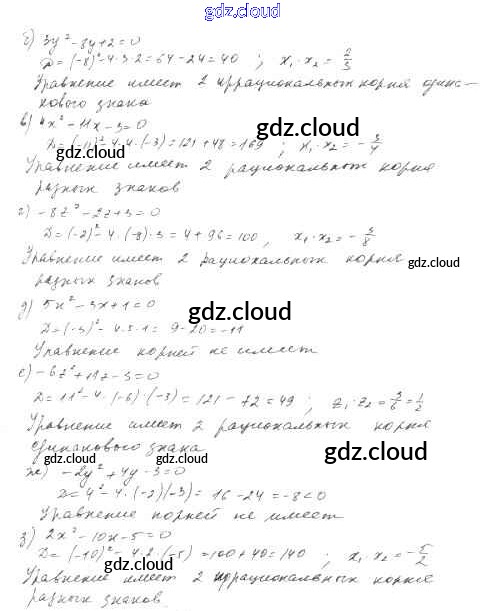 gdz.cloud
б) 3y² - 8y + 2 = 0
D = (-8)² - 4·3·2 = 64 - 24 = 40 ; x₁·x₂ = 2/3
Уравнение имеет 2 иррациональных корня одина-
кового знака
в) 4x² - 11x - 3 = 0
D = (-11)² - 4·4·(-3) = 121 + 48 = 169 ; x₁·x₂ = -3/4
Уравнение имеет 2 рациональных корня
разных знаков
г) -8z² - 2z + 3 = 0
D = (-2)² - 4·(-8)·3 = 4 + 96 = 100 , x₁·x₂ = -3/8
Уравнение имеет 2 рациональных корня
разных знаков
д) 5x² - 3x + 1 = 0
D = (-3)² - 4·5·1 = 9 - 20 = -11
Уравнение корней не имеет
е) -6z² + 11z - 3 = 0
D = 11² - 4·(-6)·(-3) = 121 - 72 = 49 ; z₁·z₂ = 3/6 = 1/2
Уравнение имеет 2 рациональных корня
одинакового знака
ж) -2y² + 4y - 3 = 0
D = 4² - 4·(-2)(-3) = 16 - 24 = -8 < 0
Уравнение корней не имеет
з) 2x² - 10x - 5 = 0
D = (-10)² - 4·2·(-5) = 100 + 40 = 140 ; x₁·x₂ = -5/2
Уравнение имеет 2 иррациональных корня
разных знаков
gdz.cloud
gdz.cloud
gdz.cloud
gdz.cloud
gdz.cloud
gdz.cloud
gdz.cloud
gdz.cloud
gdz.cloud
gdz.cloud
gdz.cloud